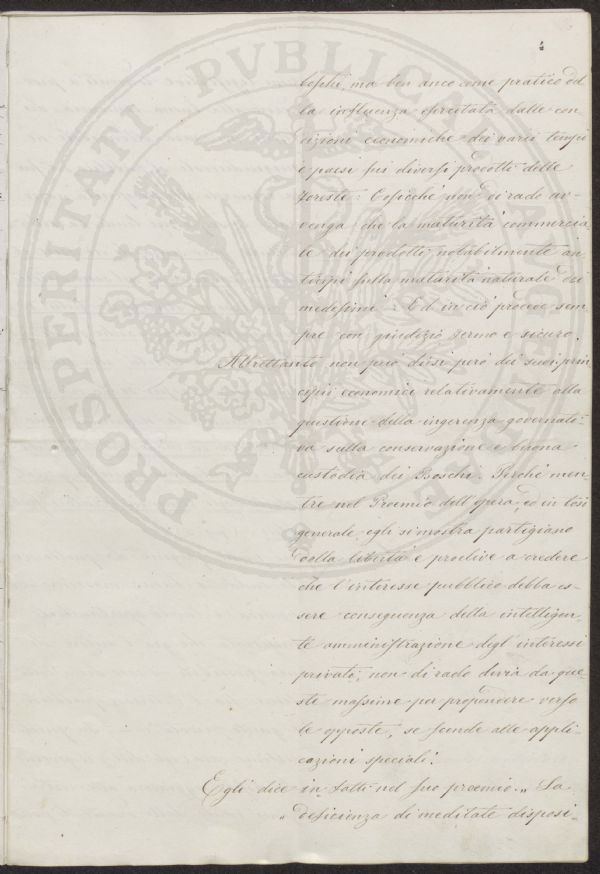 4
boschi, ma ben anco come pratico ed
la influenza esercitata dalle con-
dizioni economiche dei varii tempi
e paesi sui diversi prodotti delle
foreste: Cosicchè non di rado av-
venga che la maturità commercia-
le dei prodotti notabilmente an-
ticipi sulla maturità naturale dei
medesimi. Ed in ciò procede sem-
pre con giudizio fermo e sicuro.
Altrettanto non può dirsi però dei suoi prin-
cipii economici relativamente alla
questione della ingerenza governati-
va sulla conservazione e buona
custodia dei Boschi. Perchè men-
tre nel Proemio dell'opera, ed in tesi
generale, egli si mostra partigiano
della libertà e proclive a credere
che l'interesse pubblico debba es-
sere conseguenza della intelligen-
te amministrazione degl'interessi
privati, non di rado devia da que-
ste massime per propendere verso
le opposte, se scende alle appli-
cazioni speciali.
Egli dice in fatti nel suo proemio „ La
„ deficienza di meditate disposi-
PROSPERITATI PVBLICAE